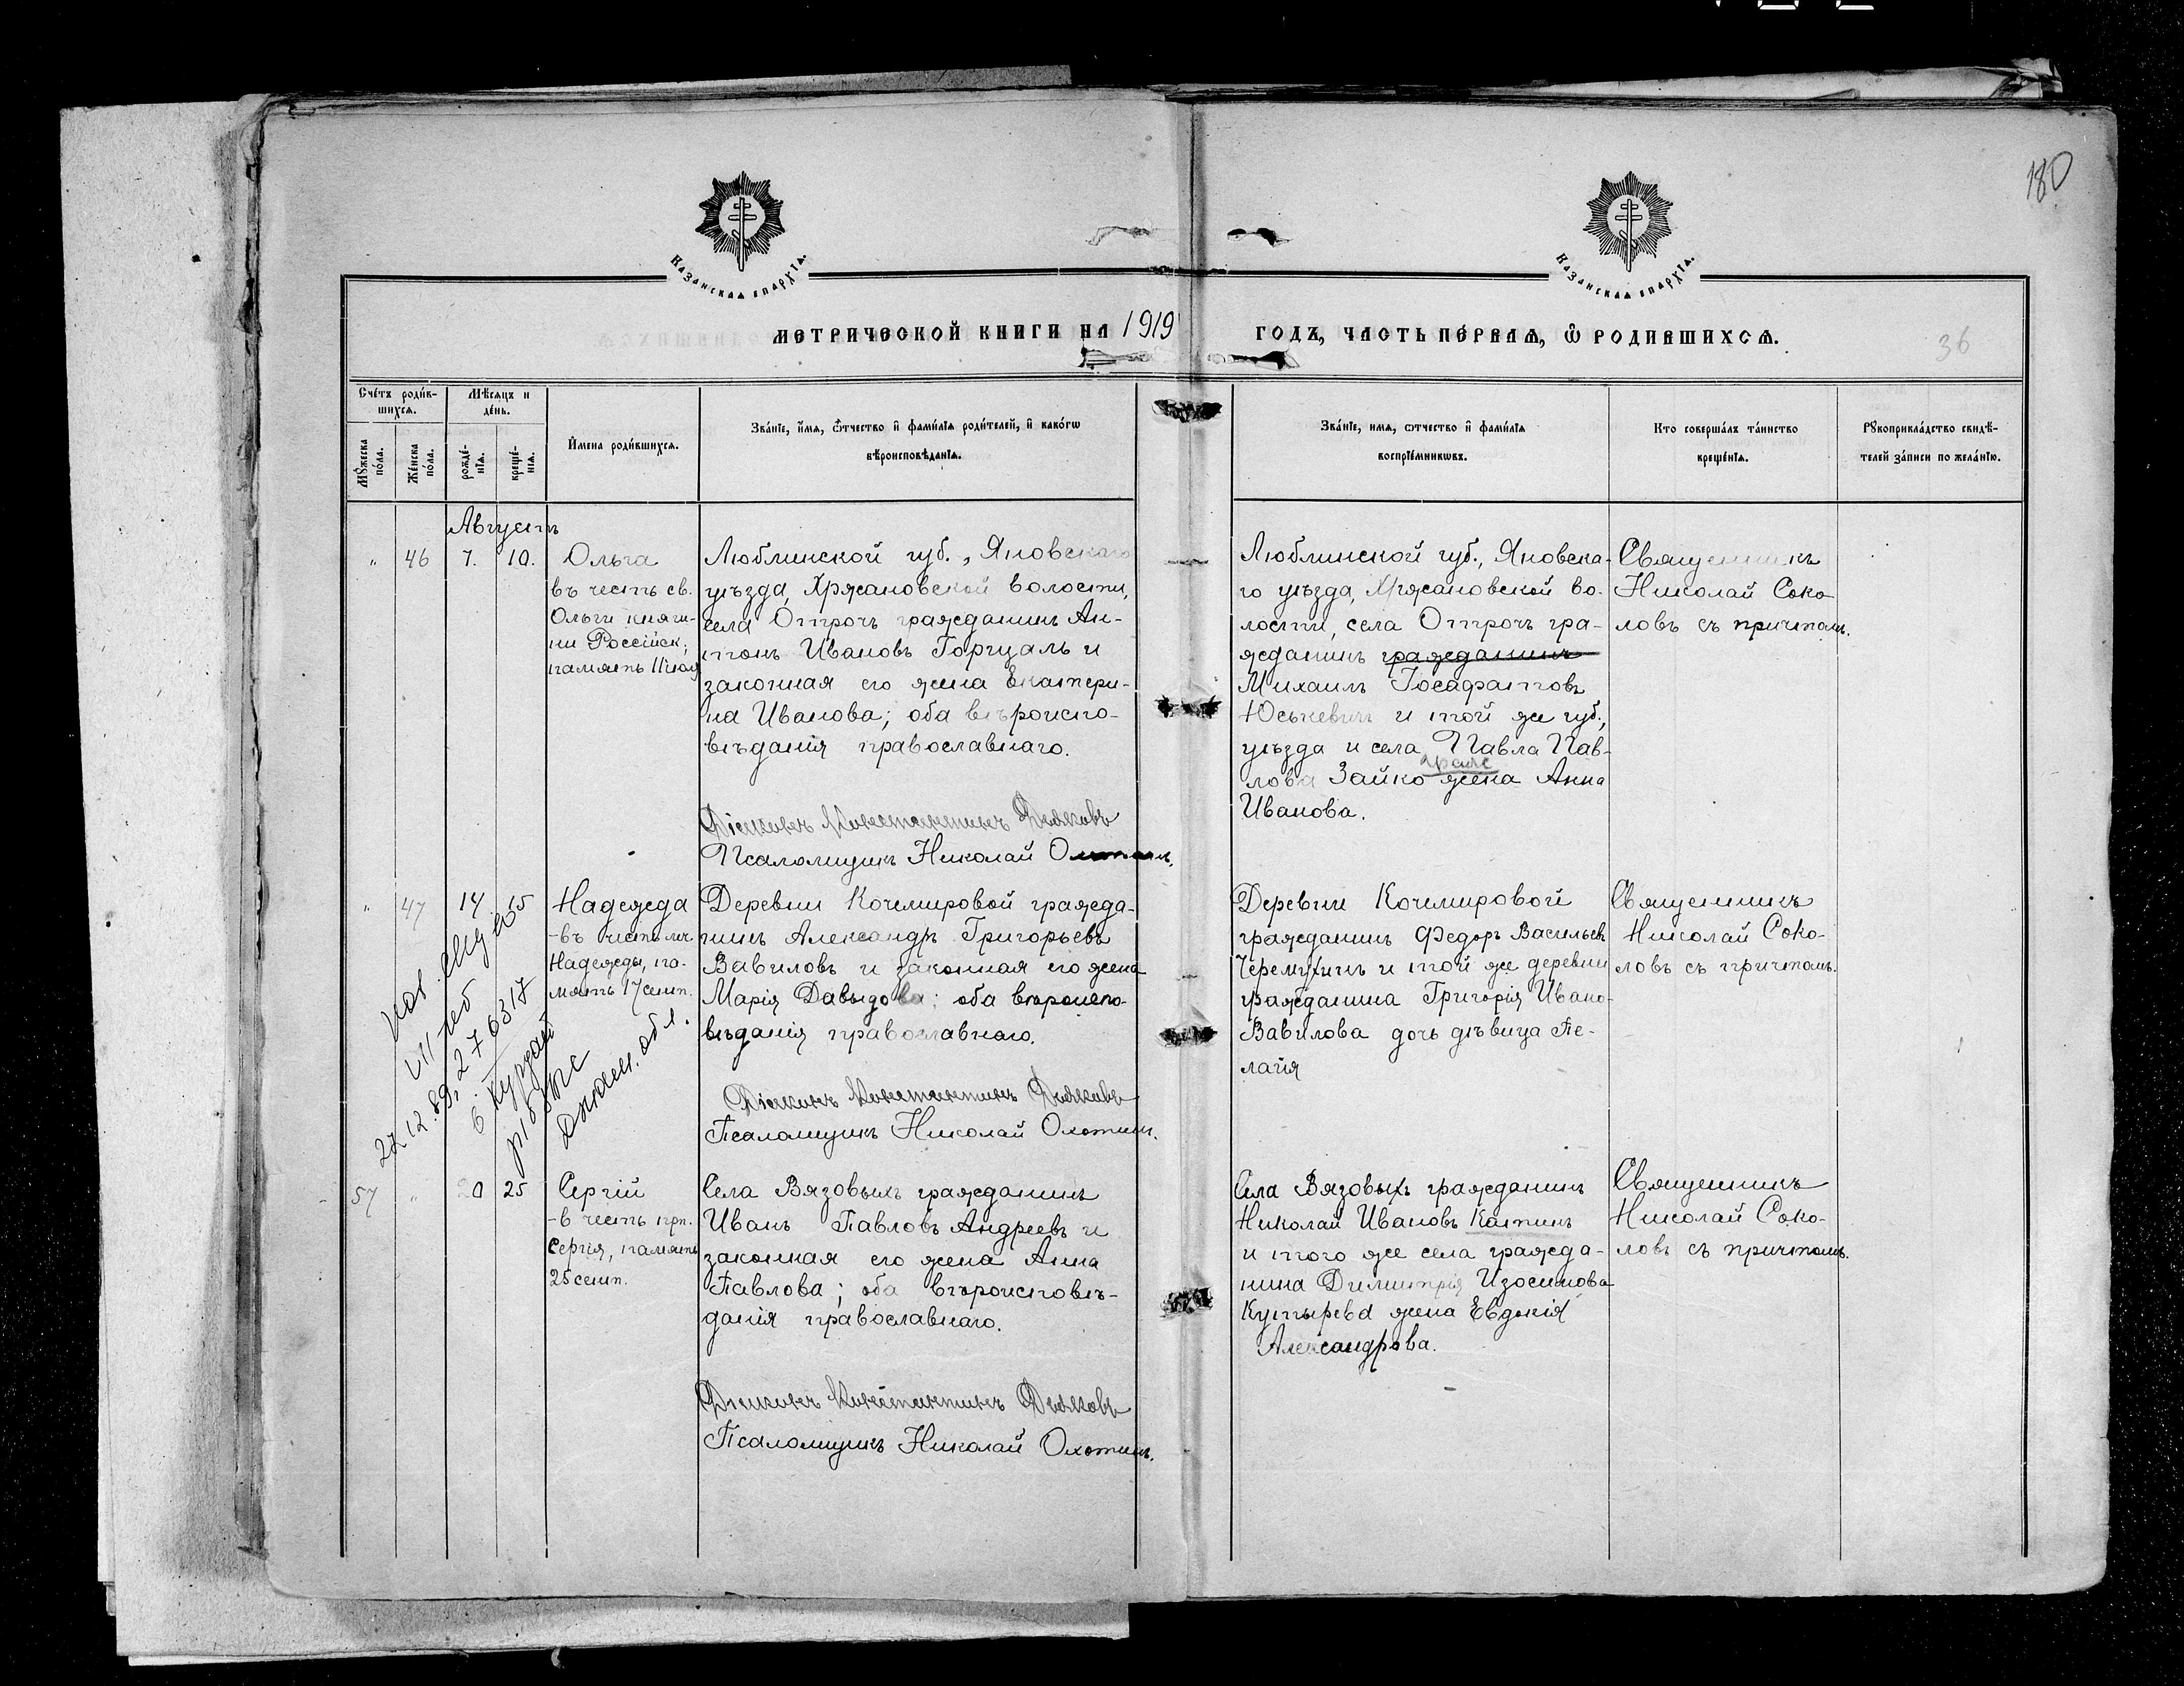 180
Казанская епархїя.
Казанская епархїя.
метрической книги на 1919
годъ, часть пе́рвая, ѡ҆ родившихсѧ.
36
Сче́тъ роди́в-
шихсѧ.
Мꙋ́жеска по́ла.
Же́нска по́ла.
Мѣ́сѧцъ и
де́нь.
рожде́-
нїѧ.
креще́-
нїѧ.
И҆мена роди́вшихсѧ.
Зва́нїе, и҆мѧ, ѻ҆́тчество и҆ фами́лїѧ роди́телей, и҆ како́гѡ
вѣроисповѣ́данїѧ.
Зва́нїе, имѧ, ѻтчество и҆ фами́лїѧ
воспрїе́мникѡвъ.
Кто соверша́лъ та́инство
креще́нїѧ.
Рꙋкоприкла́дство свидѣ́-
телей за́писи по жела́нїю.
Августъ
" 46 7. 10.
Ольга
въ честь св.
Ольги княги-
ни Россійск.,
память 11 июля
Люблинской губ., Яновскаго
уѣзда, Хржановской волости,
села Оттрочъ гражданинъ Ан-
тонъ Ивановъ Горгуаль и
законная его жена Екатери-
на Иванова; оба вѣроиспо-
вѣданія православнаго.
Діаконъ Константинъ Дьяковъ
Псаломщикъ Николай Охотинъ.
Люблинской губ., Яновска-
го уѣзда, Хржановской во-
лости, села Оттрочъ гра-
жданинъ гражданинъ
Михаилъ Іосафатовъ
Юськевичъ и той же губ.,
уѣзда и села Павла Пав-
лова Зайко граж жена Анна
Иванова.
Священникъ
Николай Соко
ловъ съ причтомъ.
" 47 14 15
Надежда
-въ честь мч.
Надежды, па-
мять 17 сент.
Деревни Кочемировой гражда-
нинъ Александръ Григорьевъ
Вавиловъ и законная его жена
Марія Давыдова; оба вѣроиспо-
вѣданія православнаго.
Діаконъ Константинъ Дьяковъ
Псаломщикъ Николай Охотинъ.
Деревни Кочемировой
гражданинъ Федоръ Васильевъ
Черемухинъ и той же деревни
гражданина Григорія Ивано-
Вавилова дочь дѣвица Пе-
лагія
Священникъ
Николай Соко-
ловъ съ причтомъ.
27.12.89, 276317
с. Курдай
Джам. обл.
57 " 20 25
Сергій
-в честь прп.
Сергія, память
25 сент.
Села Вязовыхъ гражданинъ
Иванъ Павловъ Андреевъ и
законная его жена Анна
Павлова; оба вѣроисповѣ-
данія православнаго.
Діаконъ Константинъ Дьяковъ
Псаломщикъ Николай Охотинъ.
Села Вязовыхъ гражданинъ
Николай Ивановъ Катинъ
и того же села гражда-
нина Димитрія Изосимова
Кутырева жена Евдокія
Александрова.
Священникъ
Николай Соко-
ловъ съ причтомъ.